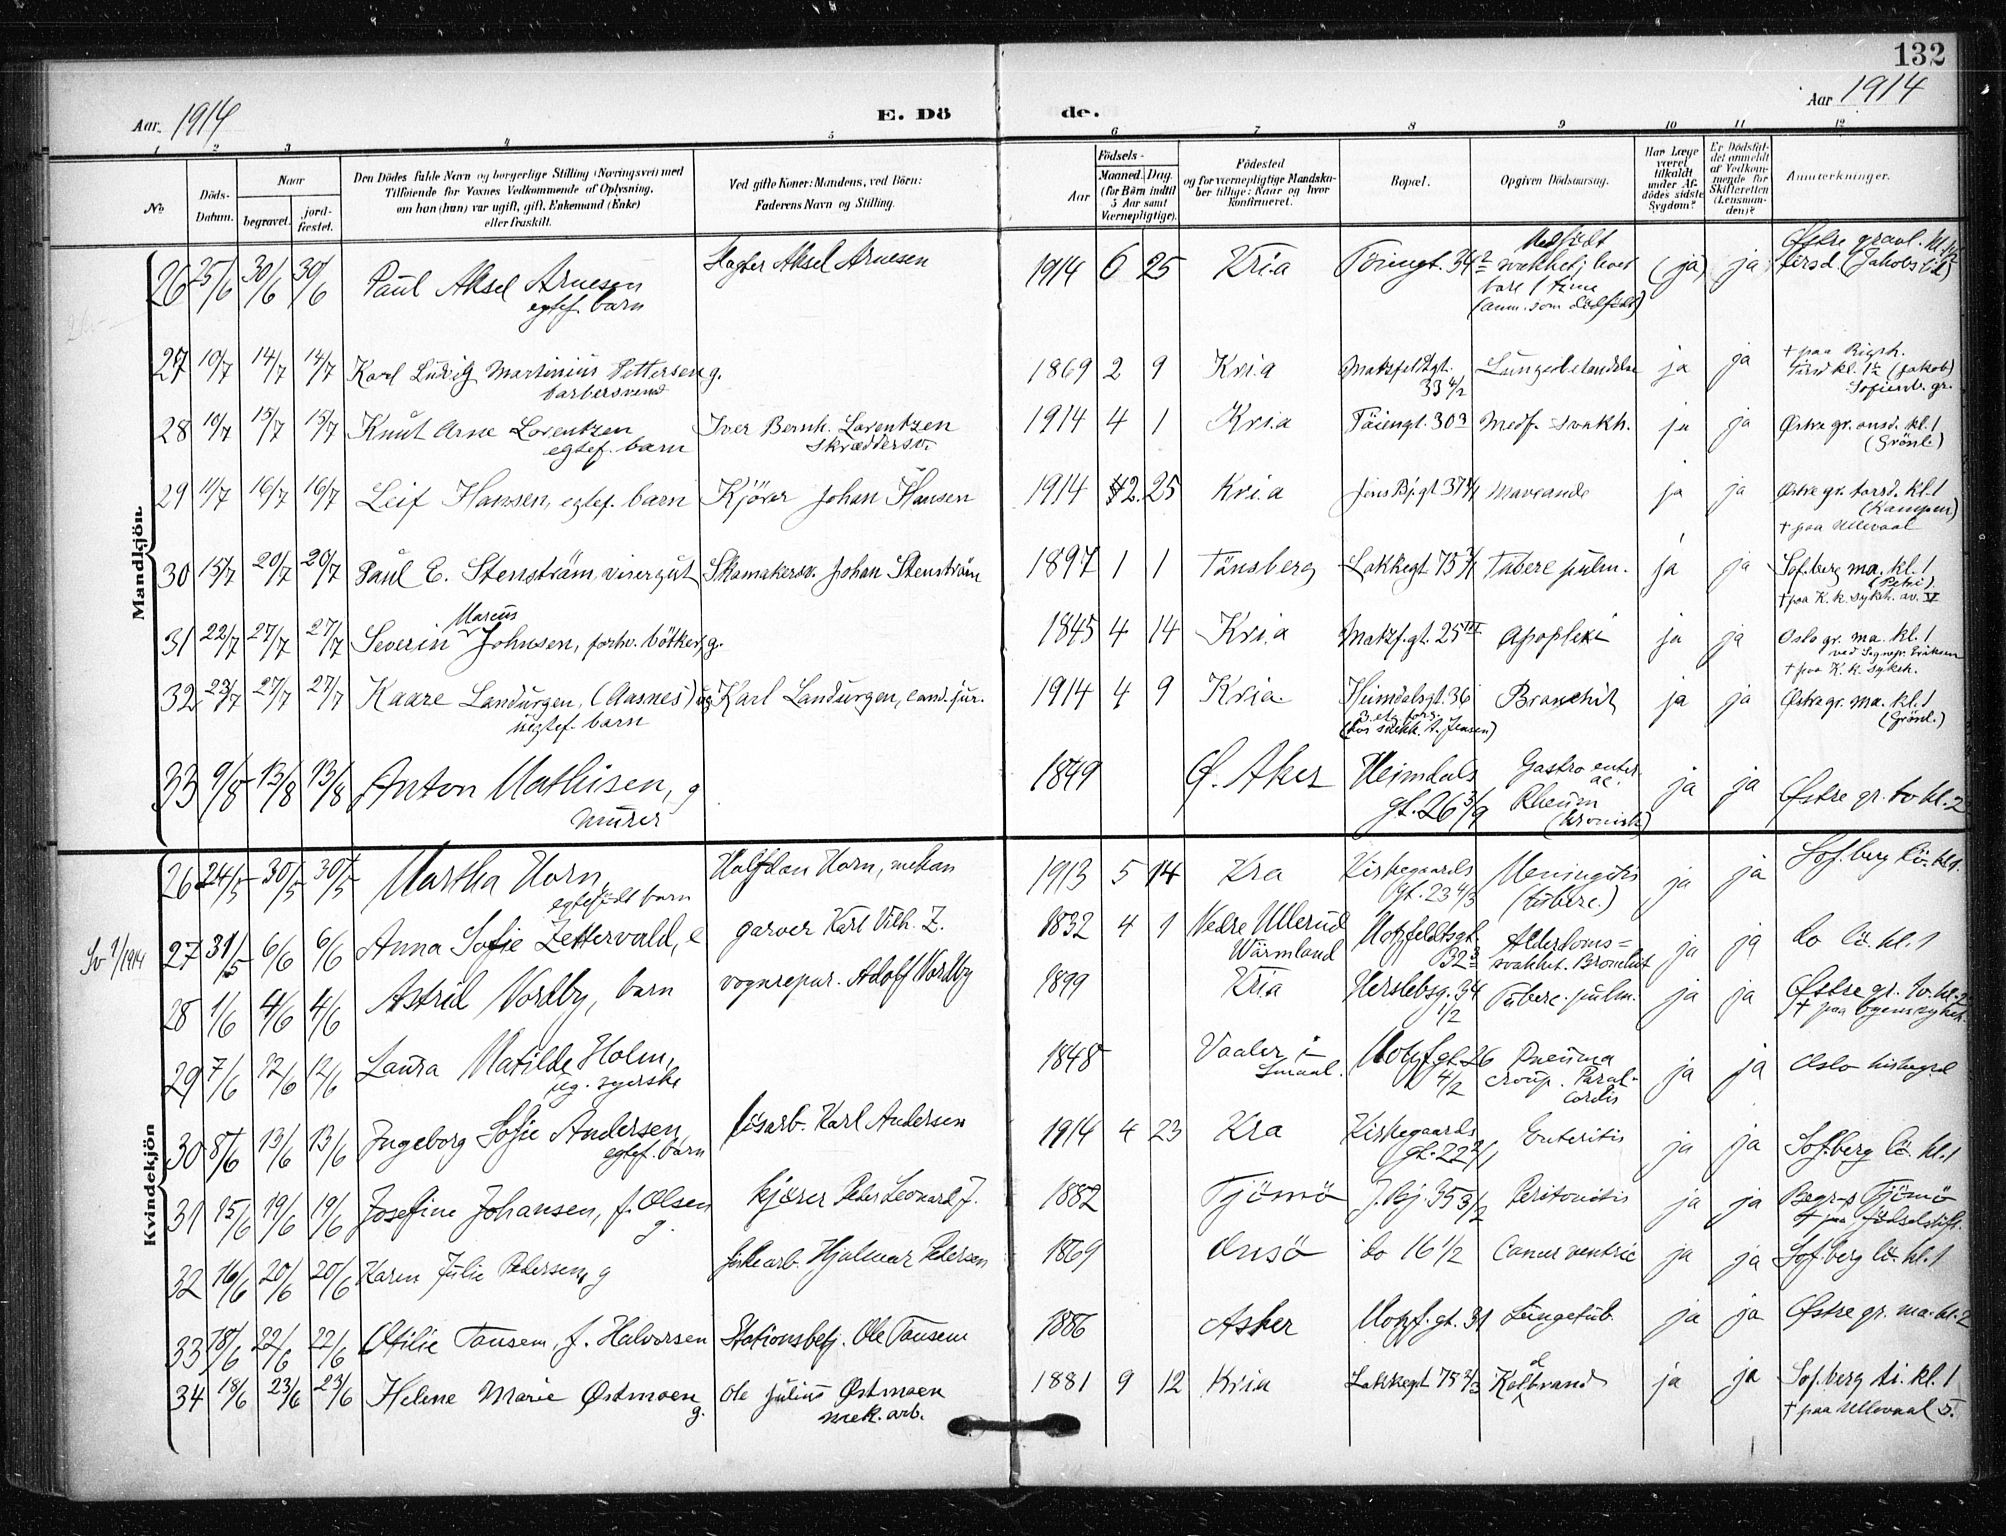 132
Aar 1914
E. Dö
de.
Aar 1914
1 2 3 4 5 6 7 8 9 10 11 12
No
Döds-Datum.
Naar
begravet.
jord-fæstet.
Den Dödes fulde Navn og borgerlige Stilling (Næringsvei) med
Tilföiende for Voxnes Vedkommende af Oplysning,
om han (hun) var ugift, gift, Enkemand (Enke)
eller fraskilt.
Ved gifte Koner: Mandens, ved Börn:
Faderens Navn og Stilling.
Födsels-
Aar
Maaned. Dag.
(for Börn indtil
5 Aar samt
Værnepligtige).
Födested
og for værnepligtige Mandska-
ber tillige: Naar og hvor
konfirmeret.
Bopæl.
Opgiven Dödsaarsag.
Har Læge
været
tilkaldt
under Af-
dödes sidste
Sygdom?
Er Dödsfal-
det anmeldt
af Vedkom-
mende for
Skifteretten
(Lensman-
den)?
Anmerkninger.
Mandkjön.
26 25/6 30/6 30/6 Paul Aksel Arnesen
egtef. barn
Slagter Aksel Arnesen
1914 6 25 Kria Töiengt. 34 2
Medfödt
svakhet; levet
bare 1 time
(anm. som dödfödt)
(ja) ja
Østre gravl. kl. 1 1/2
tirsd. (Jakobs)
27 10/7 14/7 14/7 Karl Ludvig Martinius Pettersen g.
barbersvend
1869 2 9 Kria Motzfeldtgt.
33 4/2
Lungebetændelse ja ja
+ paa Rigsh.
tirsd kl. 1 1/2 (Jakob)
Sofienb. gr.
28 10/7 15/7 15/7 Knut Arne Lorentzen
egtef. barn
Iver Bernh. Lorentzen
Skræddersv.
1914 4 1 Kria Töiengt. 30 3 Medf. svakh. ja ja
Østre gr. onsd. kl. 1
(Grönl.)
29 11/7 16/7 16/7 Leif Hansen, egtef. barn Kjörer Johan Hansen
1914 2. 25 Kria Jens Bj. gt 37 Maveonde ja ja
Østre gr. torsd. kl. 1
(Kampen)
+ paa Ullevaal
30 15/7 20/7 20/7 Paul E. Stenström visergut Skomakersv. Johan Stenström
1897 1 1 Tönsberg Lakkegt 75 Tuberc pulm. ja ja
Sof. berg ma. kl. 1
(Petri)
+ paa K. k. sykeh. av. V
31 22/7 27/7 27/7 Severin Marius Johnsen, forhv. bötker, g.
1845 4 14 Kria Motzf. gt. 25 III Apopleksi ja ja
Oslo gr. ma. kl. 1
ved Sognepr. Eriksen
+ paa K. k. sykeh.
32 23/7 27/7 27/7 Kaare Landurgen, (Aasnes) ug
uegtef. barn
Karl Landurgen, cand. jur.
1914 4 9 Kria Heimdalsgt. 36
3 etg. forg.
(hos snekk. A. Jensen)
Bronchit ja ja
Østre gr. ma. kl. 1
(Grönl.)
33 9/8 13/8 13/8 Anton Mathisen, g
murer
1849 Ø. Aker Heimdals
gt. 26 3/9
Gastro enter.
ac.
Rheum
(kronisk)
ja ja Østre gr. to kl. 2
Kvindekjön
26 24/5 30/5 30/5 Martha Horn
egtefödt barn
Halfdan Horn, mekan
1913 5 14 Kra Kirkegaards
gt. 23 4/3
Meningitis
(tuberc.)
ja ja Sof. berg lö. kl. 1.
27 31/5 6/6 6/6 Anna Sofie Zettervald, e garver Karl Vilh. Z.
1832 4 1 Nedre Ullerud
Wärmland
Motzfeldtsgt
32 3
Alderdoms=
svakhet. Bronchit
ja ja do lö. kl. 1
28 1/6 4/6 4/6 Astrid Nordby, barn vognrepar. Adolf Nordby
1899 Kria Herslebsg. 34
1/2
Tuberc. pulm. ja ja
Østre gr. to. kl. 2
+ paa byens sykeh.
29 7/6 12/6 12/6 Laura Matilde Holm,
ug. syerske
1848 Vaaler i
Smaal.
Motzf gt. 26
4/2
Pneuma
croup. Paral.
cordis
ja ja Oslo
30 8/6 13/6 13/6 Ingeborg Sofie Andersen
egtef. barn
lösarb. Karl Andersen
1914 4 23 Kra Kirkegaards
gt. 22 2/1
Enteritis ja ja Sof. berg lö. kl. 1
31 15/6 19/6 19/6 Josefine Johansen, f. Olsen
g.
kjörer Peter Leonard J.
1882 Tjömö J. Bj. 35 3/2 Peritonitis ja ja
Begr. p Tjömö
+ paa Födselstift.
32 16/6 20/6 20/6 Karen Julie Pedersen, g Hjalmar Pedersen
1869 Onsö do 16 1/2 Cancer ventric ja ja Sof. berg lö. kl. 1
33 18/6 22/6 22/6 Otilie Tansem, f. Halvorsen Stationsbetj. Ole Tansem
1886 Asker Motzf. gt. 31 Lungetub. ja ja Østre gr. ma. kl. 2
34 18/6 23/6 23/6 Helene Marie Østmoen
g.
Ole Julius Østmoen
mek. arb.
1881 9 12 Kria Lakkegt 75 2/3 Koldbrand ja ja
Sof. berg ti. kl. 1
+ paa Ullevaal 5.